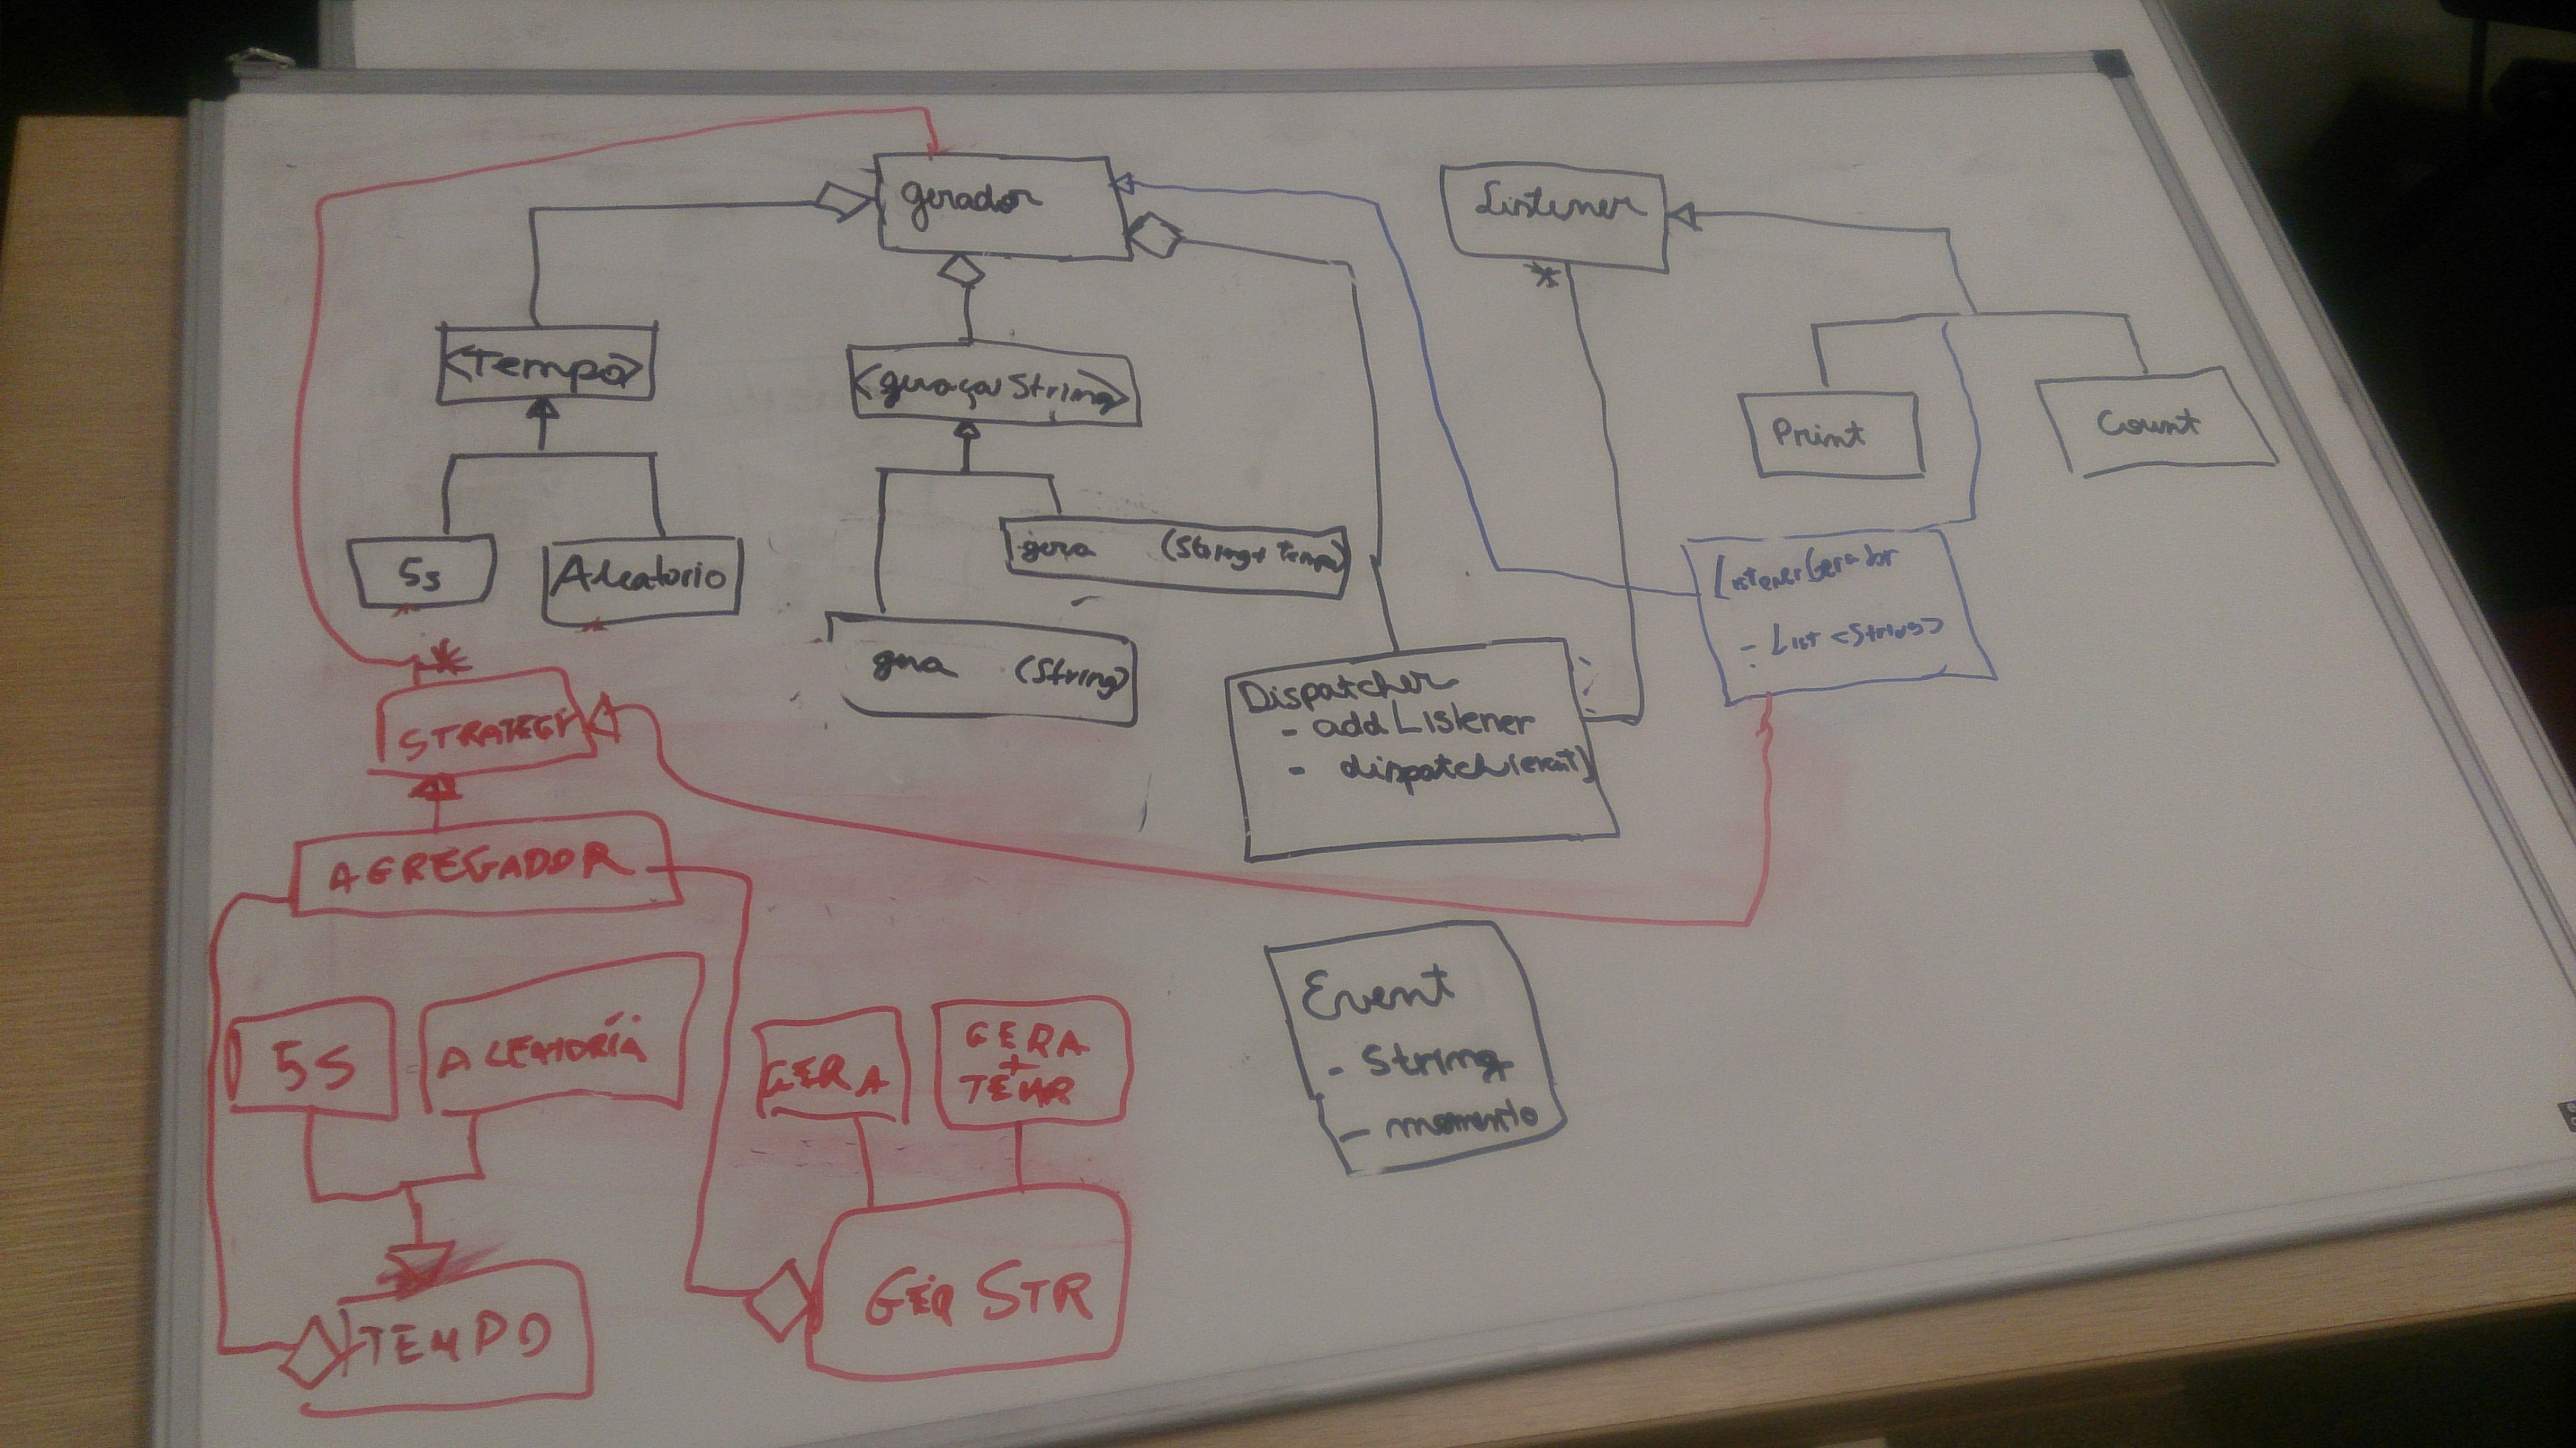 Gerador
Listener
*
<Tempo>
<geraçao String>
Print
Count
5s
Aleatorio
gera (String + Tempo)
gera (String)
ListenerGerador
- List <String>
*
STRATEGY
Dispatcher
- add Listener
- dispatch(event)
AGREGADOR
5S
ALEATORIA
GERA
GERA
+
Event
- String
- momento
TEMPO
GER STR